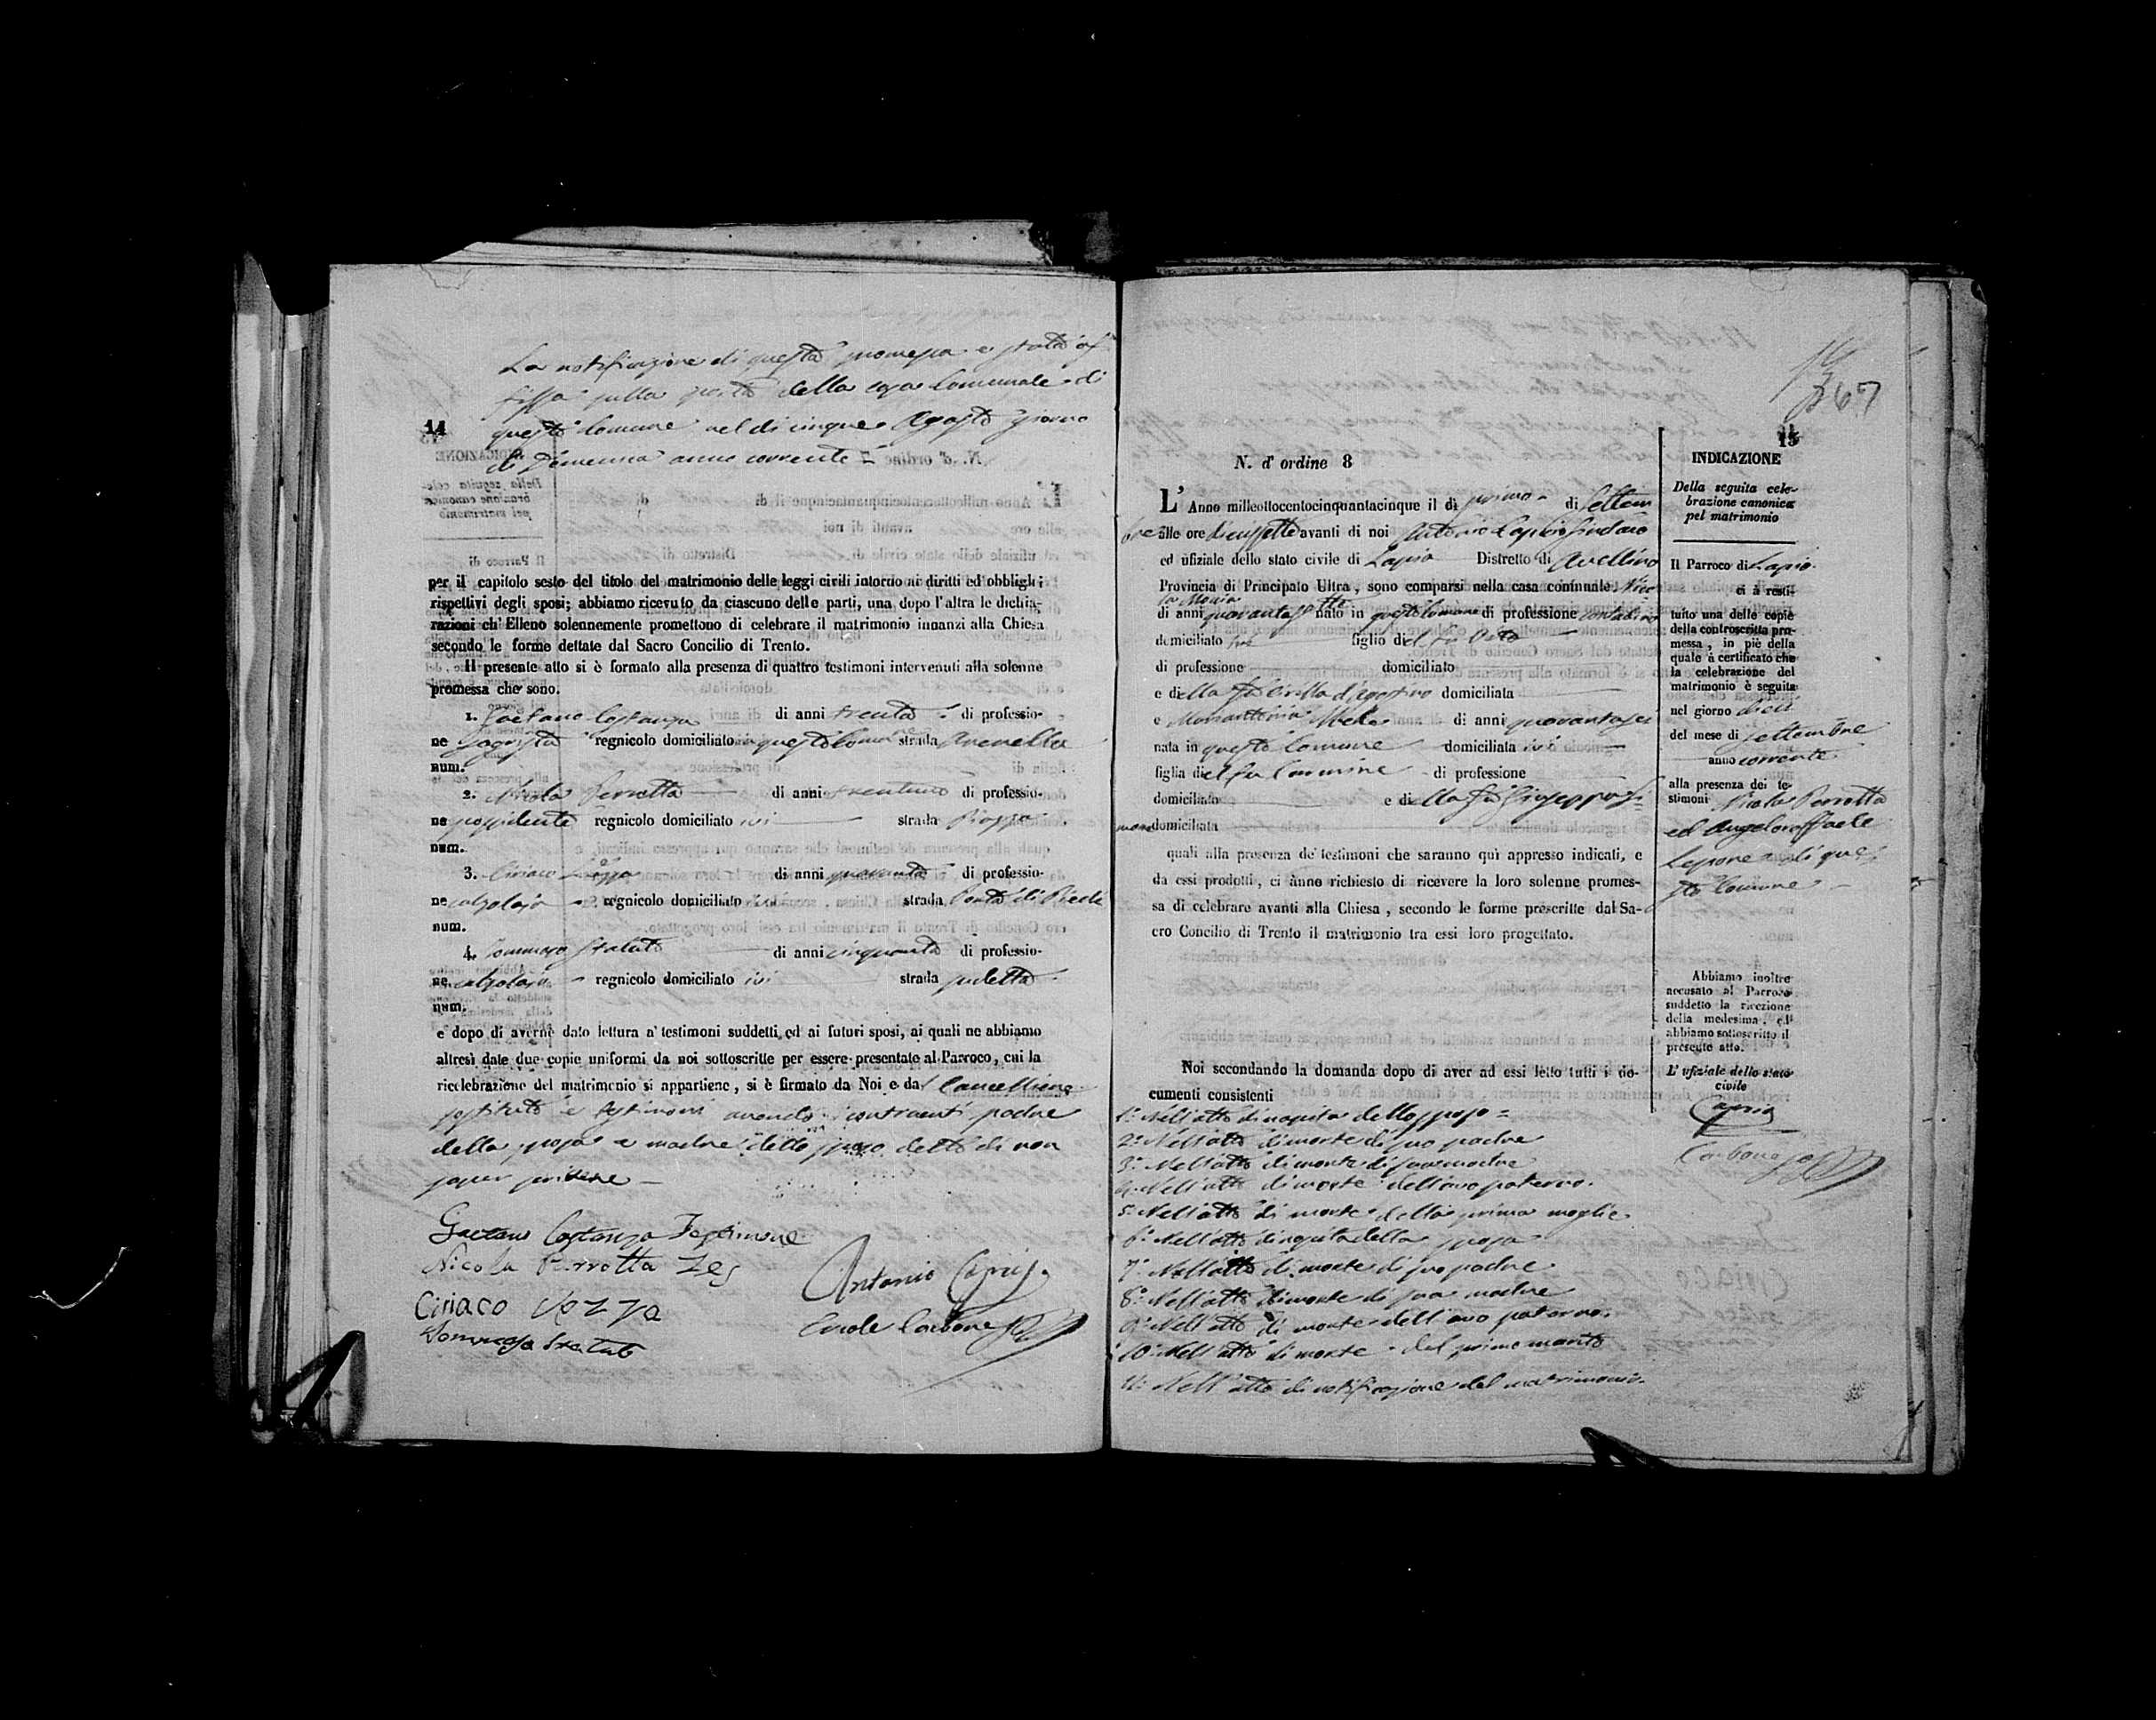 La notificazione di questa promessa è stata af
fissa sulla porta della casa Comunale di
questo Comune nel di cinque Agosto giorno
di Domenica anno corrente
14
per il capitolo sesto del titolo del matrimonio delle leggi civili intorno ai diritti ed obblighi
rispettivi degli sposi; abbiamo ricevuto da ciascuno delle parti, una dopo l'altra le dichia-
razioni ch'Elleno solennemente promettono di celebrare il matrimonio innanzi alla Chiesa
secondo le forme dettate dal Sacro Concilio di Trento.
Il presente atto si è formato alla presenza di quattro testimoni intervenuti alla solenne
promessa che sono.
1. Gaetano Costanza di anni trenta di professio-
ne regnicolo domiciliato in questo Comune strada
num.
2. Nicola Perrotta di anni trentuno di professio-
ne possidente regnicolo domiciliato ivi strada Piazza
num.
3. Ciriaco di anni quaranta di professio-
ne calzolajo regnicolo domiciliato ivi strada Porta di
num.
4. Tommaso di anni cinquanta di professio-
ne calzolajo regnicolo domiciliato ivi strada
num.
e dopo di averne dato lettura a' testimoni suddetti ed ai futuri sposi, ai quali ne abbiamo
altresì date due copie uniformi da noi sottoscritte per essere presentate al Parroco, cui la
ricelebrazione del matrimonio si appartiene, si è firmato da Noi e dal Cancelliere
sostituto e testimoni avendo i contraenti padre
della sposa e madre dello sposo detto di non
saper scrivere
Gaetano Costanza Testimone
Nicola Perrotta Tes
Ciriaco Vozza
Antonio Caprio
Carbone
367
15
N. d' ordine 8
L' Anno milleottocentocinquantacinque il dì primo di Settem
bre alle ore diciassette avanti di noi Antonio Caprio Sindaco
ed ufiziale dello stato civile di Lapio Distretto di Avellino
Provincia di Principato Ultra, sono comparsi nella casa comunale
di anni nato in questo Comune di professione contadino
domiciliato ivi figlio del fu
di professione domiciliato
e della fu domiciliata
e di anni quarantasei
nata in questo Comune domiciliata ivi
figlia del fu Carmine di professione
domiciliato e della fu
domiciliata
quali alla presenza de' testimoni che saranno quì appresso indicati, e
da essi prodotti, ci ànno richiesto di ricevere la loro solenne promes-
sa di celebrare avanti alla Chiesa, secondo le forme prescritte dal Sa-
cro Concilio di Trento il matrimonio tra essi loro progettato.
Noi secondando la domanda dopo di aver ad essi letto tutti i do-
cumenti consistenti
1º Nell'atto di nascita dello sposo
2º Nell'atto di morte di suo padre
3º Nell'atto di morte di sua madre
4º Nell'atto di morte dell'avo paterno.
5º Nell'atto di morte della prima moglie
6º Nell'atto di nascita della sposa
7º Nell'atto di morte di suo padre
8º Nell'atto di morte di sua madre
9º Nell'atto di morte dell'avo paterno.
10º Nell'atto di morte del primo marito
11º Nell'atto di notificazione del matrimonio.
INDICAZIONE
Della seguita cele-
brazione canonica
pel matrimonio
Il Parroco di Lapio
ci à resti-
tuito una delle copie
della controscritta pro-
messa, in piè della
quale à certificato che
la celebrazione del
matrimonio è seguita
nel giorno dieci
del mese di settembre
anno corrente
alla presenza dei te-
stimoni Nicola Perrotta
ed Angeloraffaele
Lepore di que
sto Comune
Abbiamo inoltre
accusato al Parroco
suddetto la ricezione
della medesima, ed
abbiamo sottoscritto il
presente atto.
L' ufiziale dello stato
civile
Caprio
Carbone